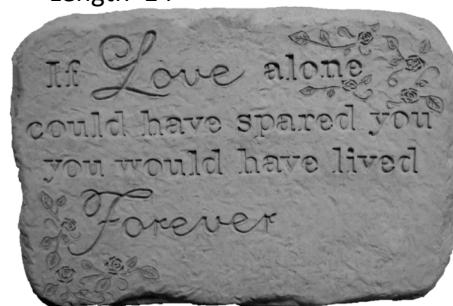 If Love alone
could have spared you
you would have lived
Forever